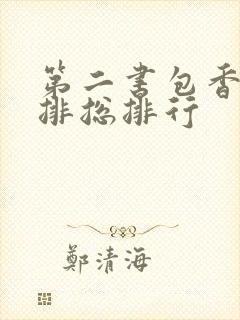 第二书包香
排总排行
鄭清海